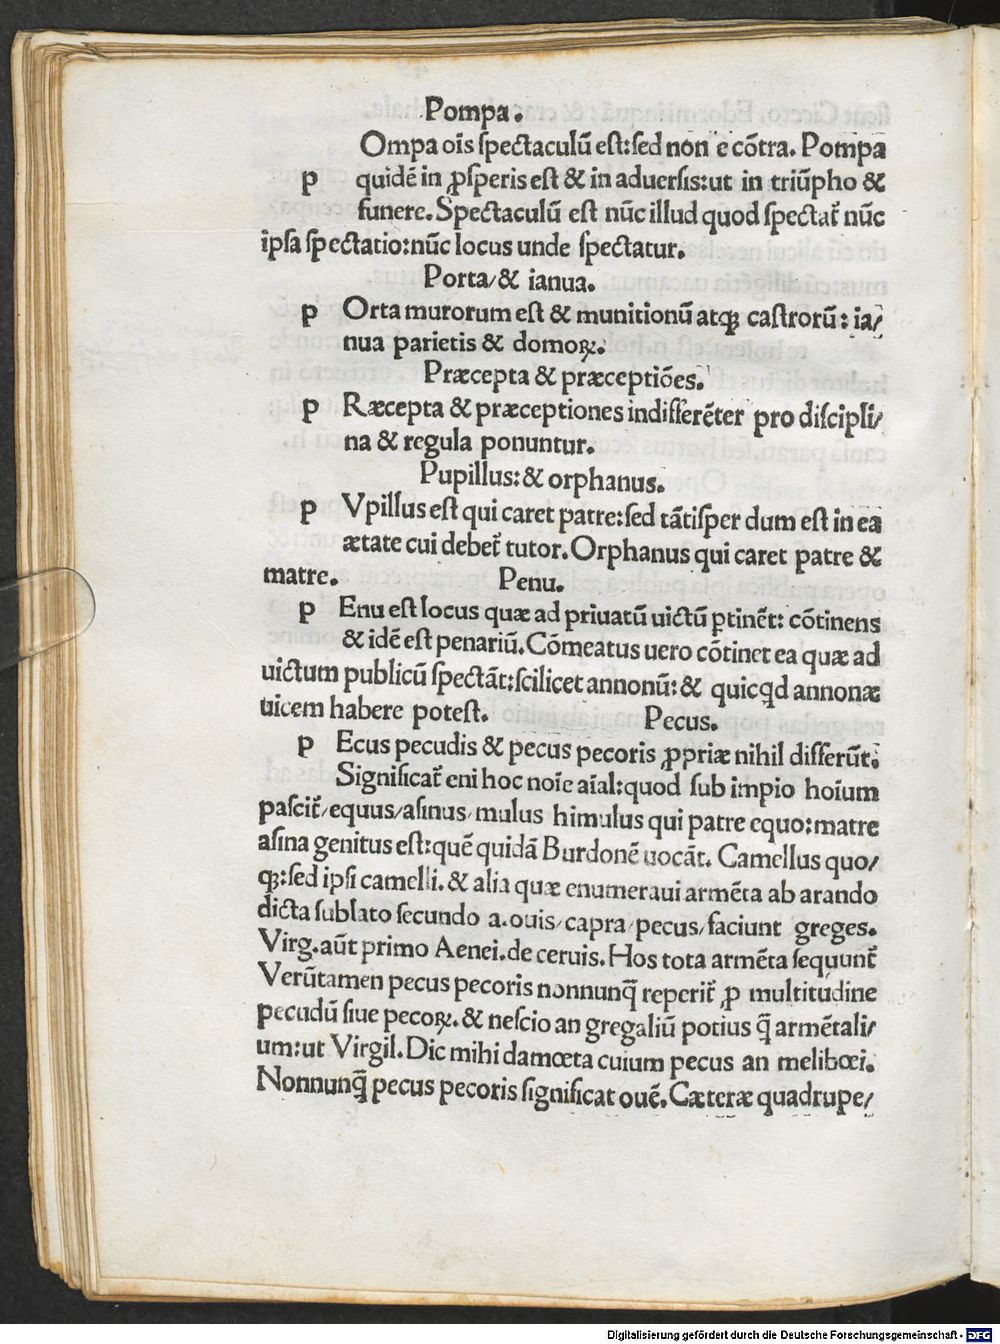 Pompa.
Ompa oīs ſpectaculū eſt:ſed non ē cōtra. Pompa
p quidē in ꝓſperis eſt & in aduerſis:ut in triūpho &
funere. Spectaculū eſt nūc illud quod ſpectat̄ nūc
ipſa ſpectatio:nūc locus unde ſpectatur.
Porta/& ianua.
p Orta murorum eſt & munitionū atqꝫ caſtrorū: ia/
nua parietis & domoꝝ.
Præcepta & præceptiōes.
p Ræcepta & præceptiones indifferēter pro diſcipli/
na & regula ponuntur.
Pupillus:& orphanus.
p Vpillus eſt qui caret patre:ſed tātiſper dum eſt in ea
ætate cui debet̄ tutor. Orphanus qui caret patre &
matre. Penu.
p Enu eſt locus quæ ad priuatū uictū ꝑtinēt: cōtinens
& idē eſt penariū. Cōmeatus uero cōtinet ea quæ ad
uictum publicū ſpectāt:ſcilicet annonū: & quicq̇d annonæ
uicem habere poteſt. Pecus.
p Ecus pecudis & pecus pecoris ꝓpriæ nihil differūt.
Significat̄ eni hoc noīe aīal:quod ſub impio hoīum
paſcit̄/equus/aſinus/mulus himulus qui patre equo:matre
aſina genitus eſt:quē quidā Burdonē uocāt. Camellus quo/
qꝫ:ſed ipſi camelli. & alia quæ enumeraui armēta ab arando
dicta ſublato ſecundo a. ouis/capra/pecus/faciunt greges.
Virg. aūt primo Aenei. de ceruis. Hos tota armēta ſequunt̄
Verūtamen pecus pecoris nonnunq̄ reperit̄ ꝓ multitudine
pecudū ſiue pecoꝝ. & neſcio an gregaliū potius q̄ armētali/
um:ut Virgil. Dic mihi damœta cuium pecus an melibœi.
Nonnunq̄ pecus pecoris ſignificat ouē. Cæteræ quadrupe/
Digitalisierung gefördert durch die Deutsche Forschungsgemeinschaft - DFG